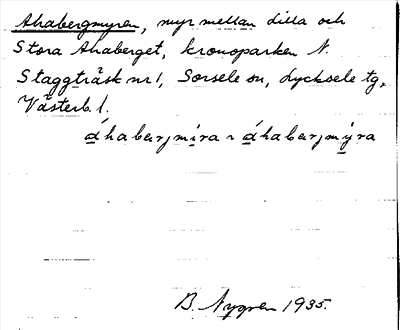 Ahabergmyren, myr mellan Lilla och
Stora Ahaberget, kronoparken N.
Staggträsk nr 1, Sorsele sn, Lycksele tg,
Västerb. l.
áhabærjmira ~ áhabærjmýra
B. Nygren 1935.